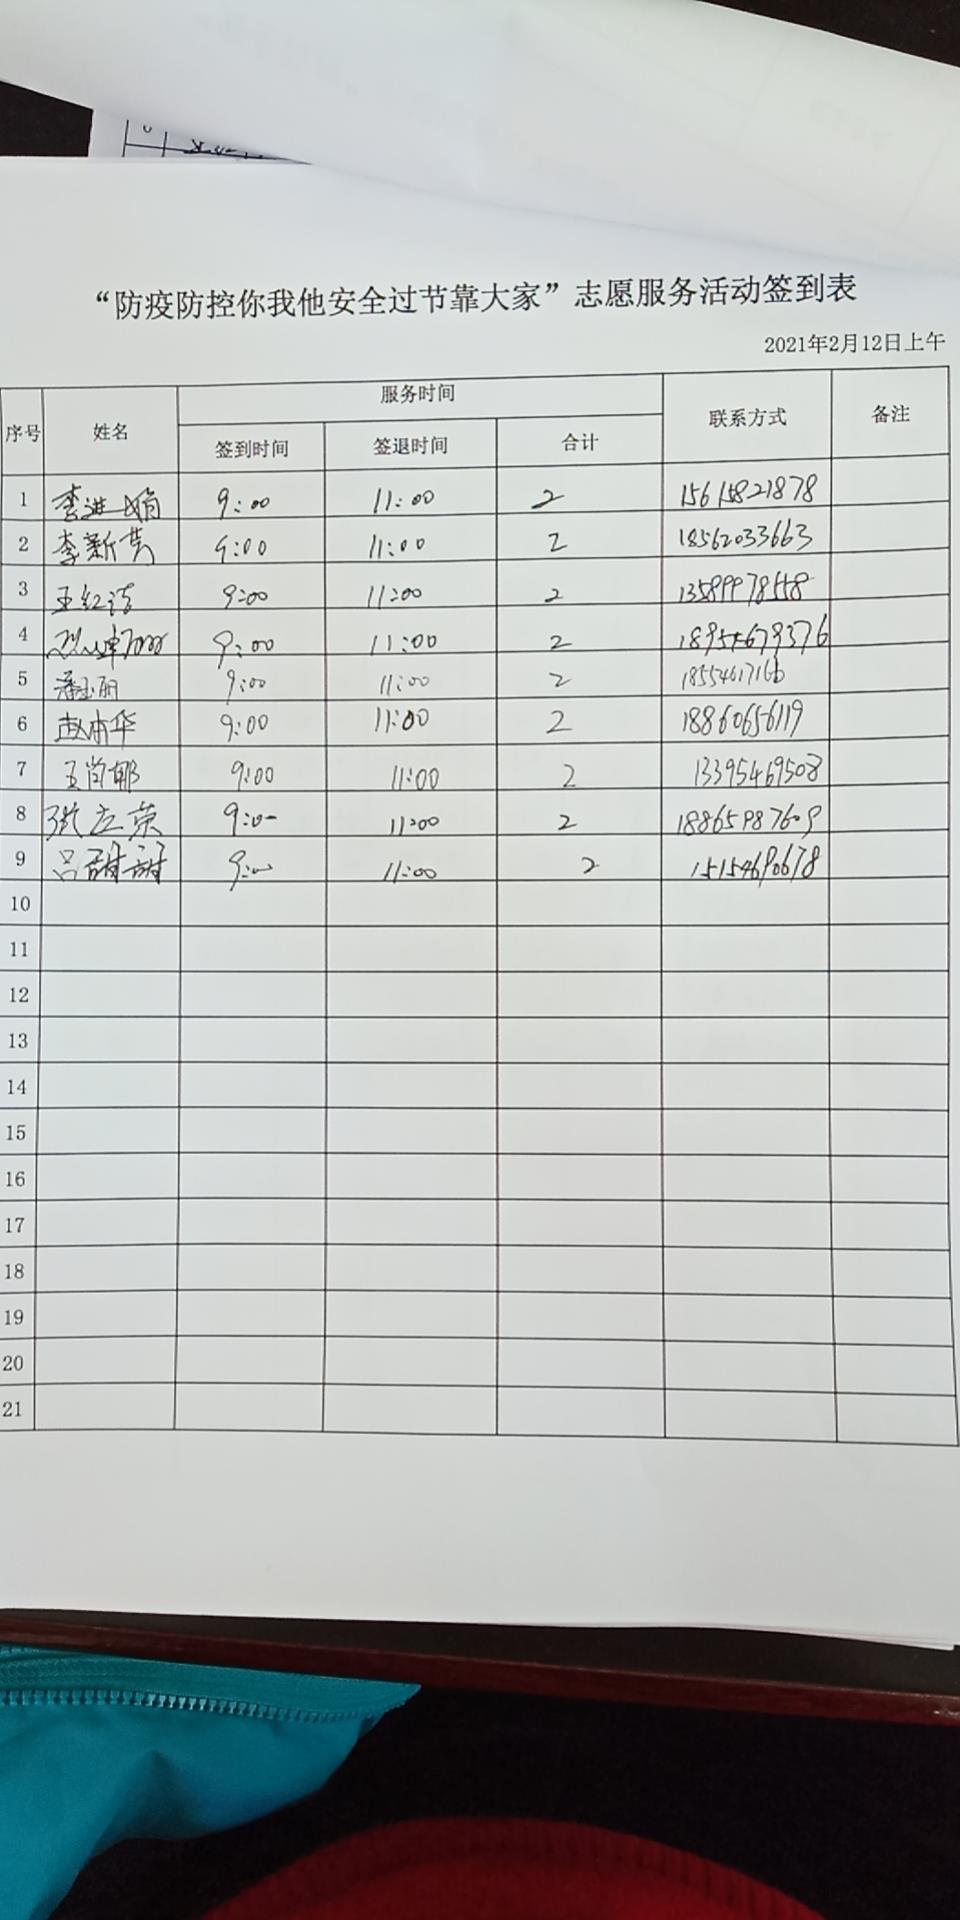 “防疫防控你我他安全过节靠大家”志愿服务活动签到表
2021年2月12日上午
序号 姓名 服务时间 联系方式 备注
签到时间 签退时间 合计
1 李进娟 9:00 11:00 2 15615821878
2 李新芳 9:00 11:00 2 18562033663
3 王红洁 9:00 11:00 2
4 9:00 11:00 2 18954679376
5 潘玉丽 9:00 11:00 2 18554617166
6 赵本华 9:00 11:00 2 18860656119
7 王肖郁 9:00 11:00 2 13395469508
8 张立荣 9:00 11:00 2 18865987609
9 吕甜甜 9:00 11:00 2 15154690678
10
11
12
13
14
15
16
17
18
19
20
21